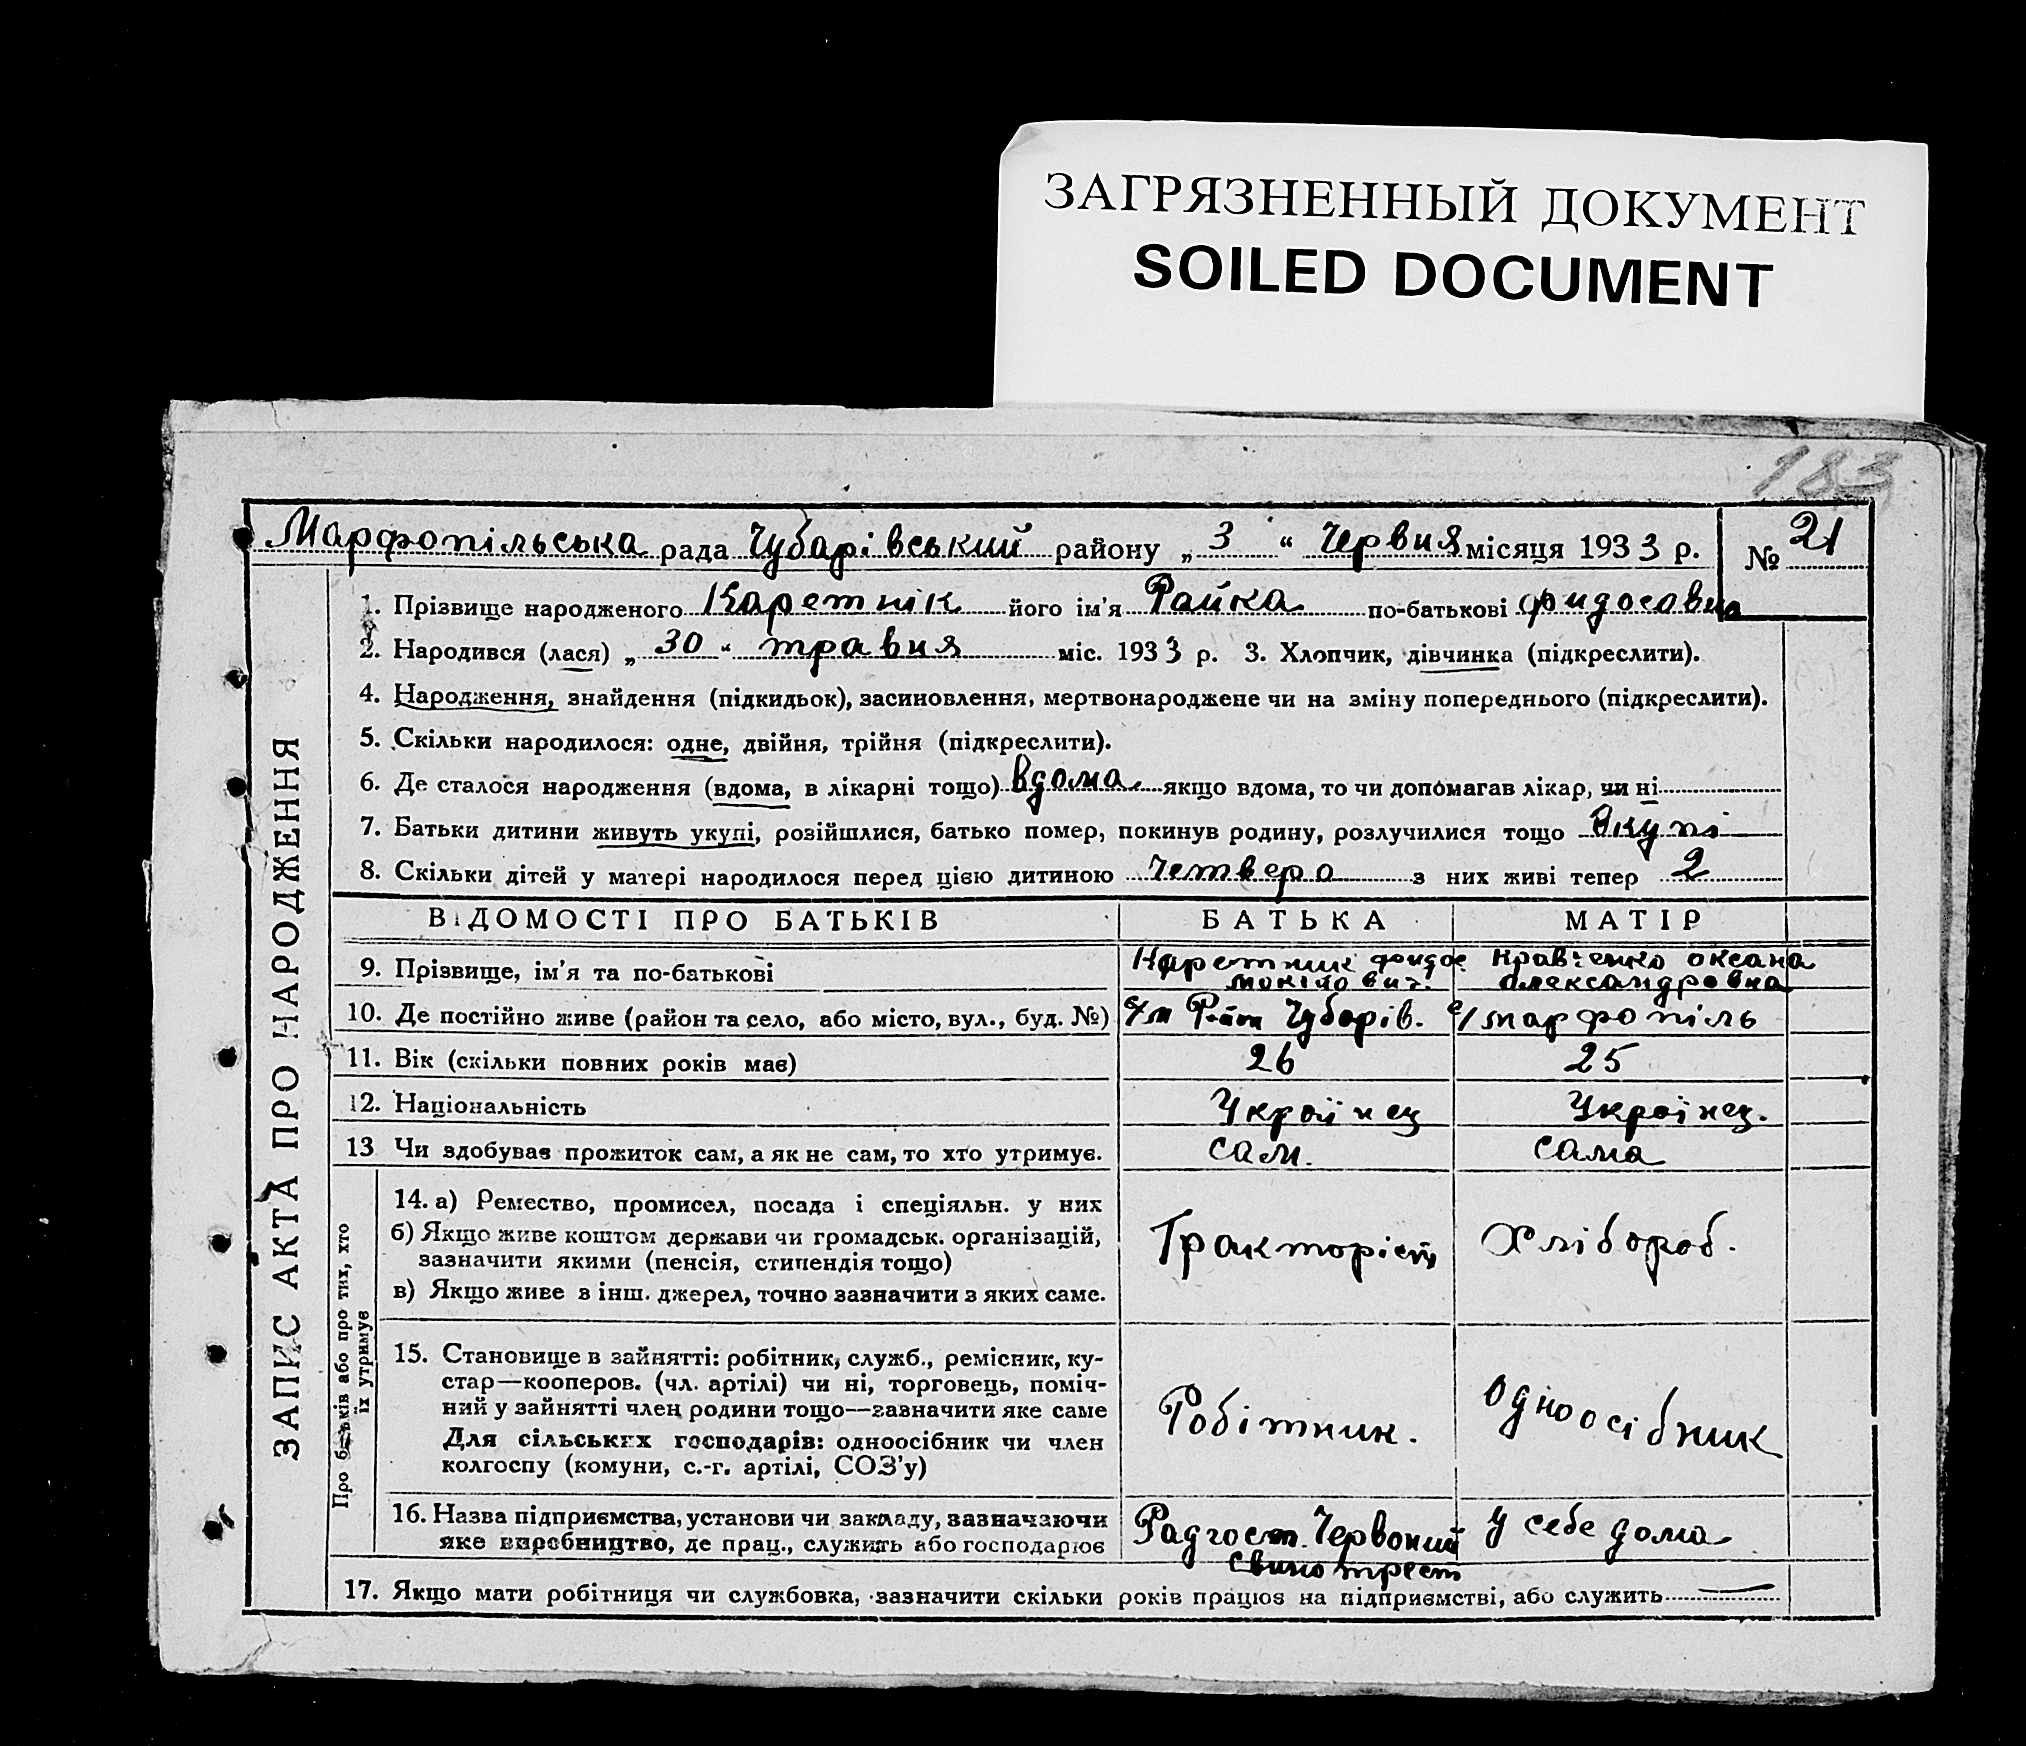 ЗАГРЯЗНЕННЫЙ ДОКУМЕНТ
SOILED DOCUMENT
183
Марфопільська рада Чубарівський району „ 3 “ Червня місяця 1933 р. № 21
ЗАПИС АКТА ПРО НАРОДЖЕННЯ
1. Прізвище народженого Каретнік його ім'я Райка по-батькові Фидосовна
2. Народився (лася) „ 30 “ травня міс. 1933 р. 3. Хлопчик, дівчинка (підкреслити).
4. Народження, знайдення (підкидьок), засиновлення, мертвонароджене чи на зміну попереднього (підкреслити).
5. Скільки народилося: одне, двійня, трійня (підкреслити).
6. Де сталося народження (вдома, в лікарні тощо) вдома якщо вдома, то чи допомагав лікар, чи ні
7. Батьки дитини живуть укупі, розійшлися, батько помер, покинув родину, розлучилися тощо Вкупі
8. Скільки дітей у матері народилося перед цією дитиною Четверо з них живі тепер 2
ВІДОМОСТІ ПРО БАТЬКІВ БАТЬКА МАТІР
9. Прізвище, ім'я та по-батькові Каретник Фидос. Кравченко Оксана
Александровна
10. Де постійно живе (район та село, або місто, вул., буд. №) Чубарів. с/Марфопіль
11. Вік (скільки повних років має) 26 25
12. Національність Українец Українец.
13 Чи здобував прожиток сам, а як не сам, то хто утримує. сам. сама
Про батьків або про тих, хто
їх утримує
14. а) Ремество, промисел, посада і спеціяльн. у них
б) Якщо живе коштом держави чи громадськ. організацій,
зазначити якими (пенсія, стипендія тощо)
в) Якщо живе з інш. джерел, точно зазначити з яких саме.
Тракторіст Хлібороб.
15. Становище в зайнятті: робітник, служб., ремісник, ку-
стар—кооперов. (чл. артілі) чи ні, торговець, поміч-
ний у зайнятті член родини тощо—зазначити яке саме
Для сільських господарів: одноосібник чи член
колгоспу (комуни, с.-г. артілі, СОЗ'у)
Робітник. Одноосібник
16. Назва підприємства, установи чи закладу, зазначаючи
яке виробництво, де прац., служить або господарює
Радгосп. Червоний У себе дома
Свинотрест
17. Якщо мати робітниця чи службовка, зазначити скільки років працює на підприємстві, або служить